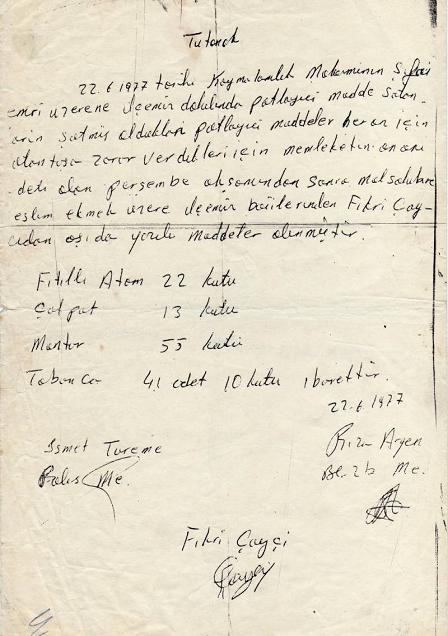 Tutanak
22.6.1977 tarihi Kaymakamlık Makamının Şifai
emri üzerene ilçemiz dahilında patlayıcı madde satan-
ların satmış oldukları patlayıcı maddeler her an için
zarar verdikleri için memleketin
olan perşembe akşamından sonra mal sahibine
teslim etmek üzere ilçemiz Fikri Çay-
cıdan aşıda yazılı maddeler alınmıştır.
Fitilli Atom 22 kutu
Çatpat 13 kutu
Mantar 55 kutu
Tabanca 41 adet 10 kutu ibarettir.
22.6.1977
İsmet Türeme
Polis Me.
Rıza
Me.
Fikri Çayçi